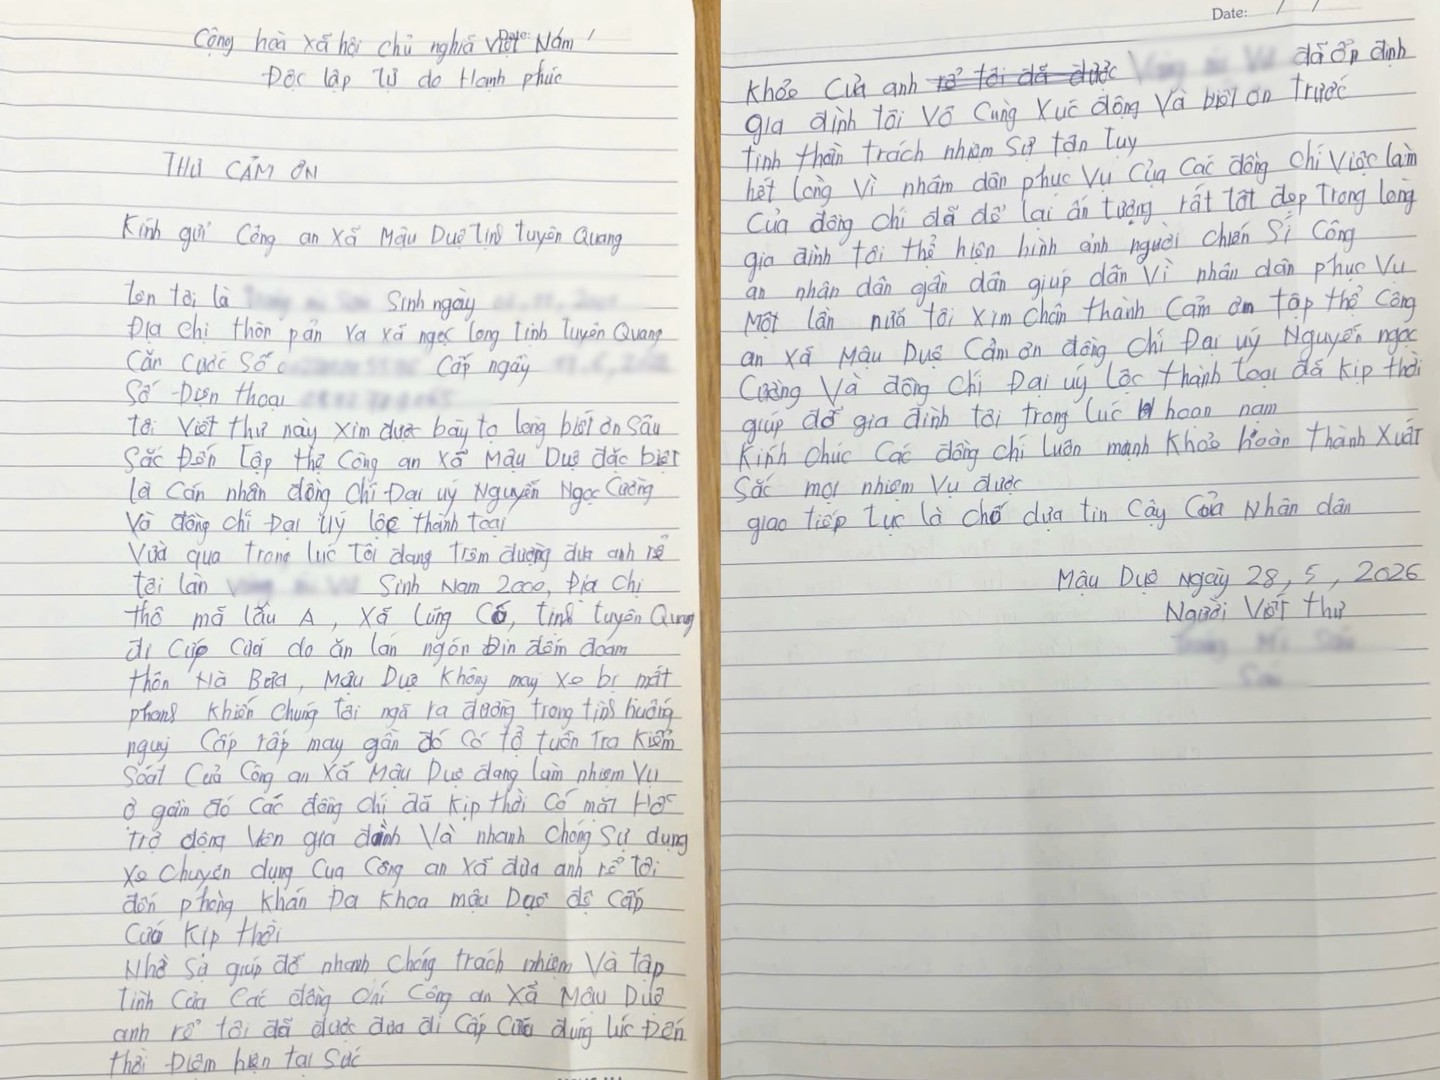 Cộng hoà xã hội chủ nghĩa Việt Nam
Độc lập Tự do Hạnh phúc
THƯ CẢM ƠN
Kính gửi Công an xã Mậu Duệ tỉnh tuyên Quang
Tên tôi là Sinh ngày
Địa chỉ thôn pản ya xã ngọc long tỉnh tuyên Quang
Căn Cước Số Cấp ngày
Số Điện thoại
tôi viết thư này xim được bày tỏ lòng biết ơn Sâu
Sắc Đến tập thể Công an xã Mậu Duệ đặc biệt
là Cán nhân đồng Chí Đại uý Nguyễn Ngọc Cường
Và đồng chí Đại uý lộc thành toại
Vừa qua trong lúc tôi đang trêm đường đưa anh rể
tôi làn Sinh Năm 2000, Địa Chỉ
thô mã lầu A, xã Lũng Cú, tỉnh tuyên Quang
đi Cấp Cứu do ăn lán ngón Đin đếm đoạm
thôn Nà Bưa, Mậu Duệ Không may xe bị mất
phanh Khiến Chúng tôi ngã ra đường trong tình huống
nguy Cấp rấp may gần đó Có tổ tuần tra Kiểm
Soát Của Công an xã Mậu Duệ đang làm nhiệm Vụ
ở gầm đó Các đồng Chí đã Kịp thời Có mặt Hỗ
trợ động Viên gia đình Và nhanh Chóng Sử dụng
xe Chuyên dụng Của Công an xã đưa anh rể tôi
đến phòng Khán Đa Khoa mậu Duệ để Cấp
Cứu Kịp thời
Nhờ Sự giúp đỡ nhanh Chóng trách nhiệm Và tập
tình Của Các đồng Chí Công an xã Mậu Duệ
anh rể tôi đã được đưa đi Cấp Cứu đúng lúc Đến
thời Điểm hiện tại Sức
Date: / /
Khỏe Của anh rể tôi đã được đã ổp định
gia đình tôi Vô Cùng Xúc động Và biết ơn trước
tinh thần trách nhiệm Sự tận tụy
hết lòng Vì nhâm dân phục Vụ Của Các đồng Chí Việc làm
Của đồng chí đã để lại ấn tượng rất tốt đẹp trong lòng
gia đình tôi thể hiện hình ảnh người chiến Sĩ Công
an nhân dân gần dân giúp dân Vì nhân dân phục Vụ
Một lần nữa tôi xim chân thành Cảm ơn tập thể Công
an xã Mậu Duệ Cảm ơn đồng Chí Đại uý Nguyễn ngọc
Cường Và đồng Chí Đại uý lộc thành toại đã Kịp thời
giúp đỡ gia đình tôi trong lúc hoạn nạm
Kính chúc Các đồng chí luôn mạnh Khỏe hoàn thành Xuất
Sắc mọi nhiệm Vụ được
giao tiếp tục là chỗ dựa tin Cậy Của Nhân dân
Mậu Duệ Ngày 28, 5, 2026
Người Viết thư